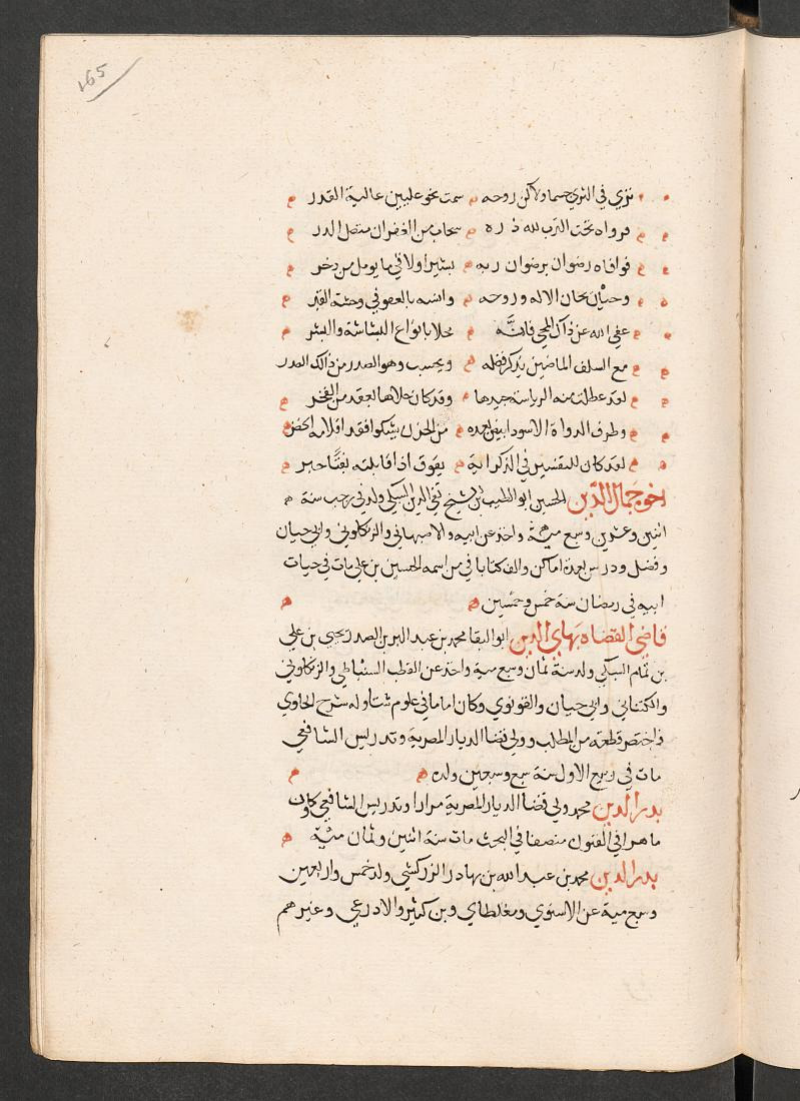 165
نزي في الثري جسما ولاكن روحه م سمت نحو عليين عالية القدر م
فرواه تحت الترب لله دره م سحاب من الغفران متصل الدر م
فوافاه رضوان برضوان ربه م بشيرا ولاقي ما يومل من دخر م
وحيان يحان الاله وروحه م وانسه بالعفو في وحشة القبر م
عفي الله عن ذاك المحي فانه م محلا بانواع البشاشة والبشر م
مع السلف الماضين يذكر فضله م ويحسب وهو الصدر من ذالك الصدر
لقد عطلت منه الرياسة جيدها م وقد كان حلاها بعقد من الفخر م
وطرف الدواة الاسود ابيض بعده م من الحزن يشكوا فقد اقلامه الخضر م
لقد كان للمقتبسين في الذكر اية م يفوق اذا قابلته بفتا حبر م
اخوه جمال الدين الحسين ابو الطيب بن الشيخ تقي الدين السبكي ولد في رجب سنة
اثنين وعشرين وسبع مئة واخذ عن ابيه والاصبهاني والزنكلوني وابي حيان
وفضل ودرس بعدة اماكن والف كتابا في من اسمه الحسين بن علي مات في حيات
ابيه في رمضان سنة خمس وخمسين م م
قاضي القضاه بهاي الدين ابو البقا محمد بن عبد البر بن الصدر يحيى بن علي
بن تمام السبكي ولد سنة ثمان وسبع مية واخذ عن القطب السنباطي والزنكلوني
والكتناني وابي حيان والقونوي وكان اماما في علوم شتا وله شرح الحاوي
واختصر قطعة من المطلب وولي قضا الديار المصرية وتدريس الشافعي
مات في ربيع الاول سنة سبع وسبعين ولده م م
بدر الدين محمد ولي قضا الديار المصرية مرارا وتدريس الشافعي وكان
ماهرا في الفنون منصفا في البحث مات سنة اثنين وثمان مئة م
بدر الدين محمد بن عبد الله بن بهادر الزركشي ولد خمس واربعين
وسبع مية عن الاسنوي ومغلطاي وبن كثير والادرعي وغيرهم